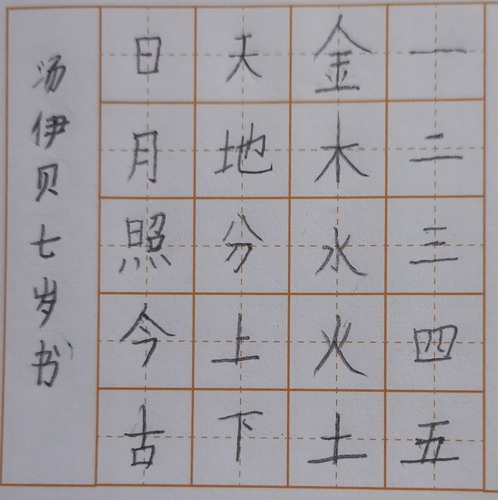 一二三四五
金木水火土
天地分上下
日月照今古
汤伊贝七岁书